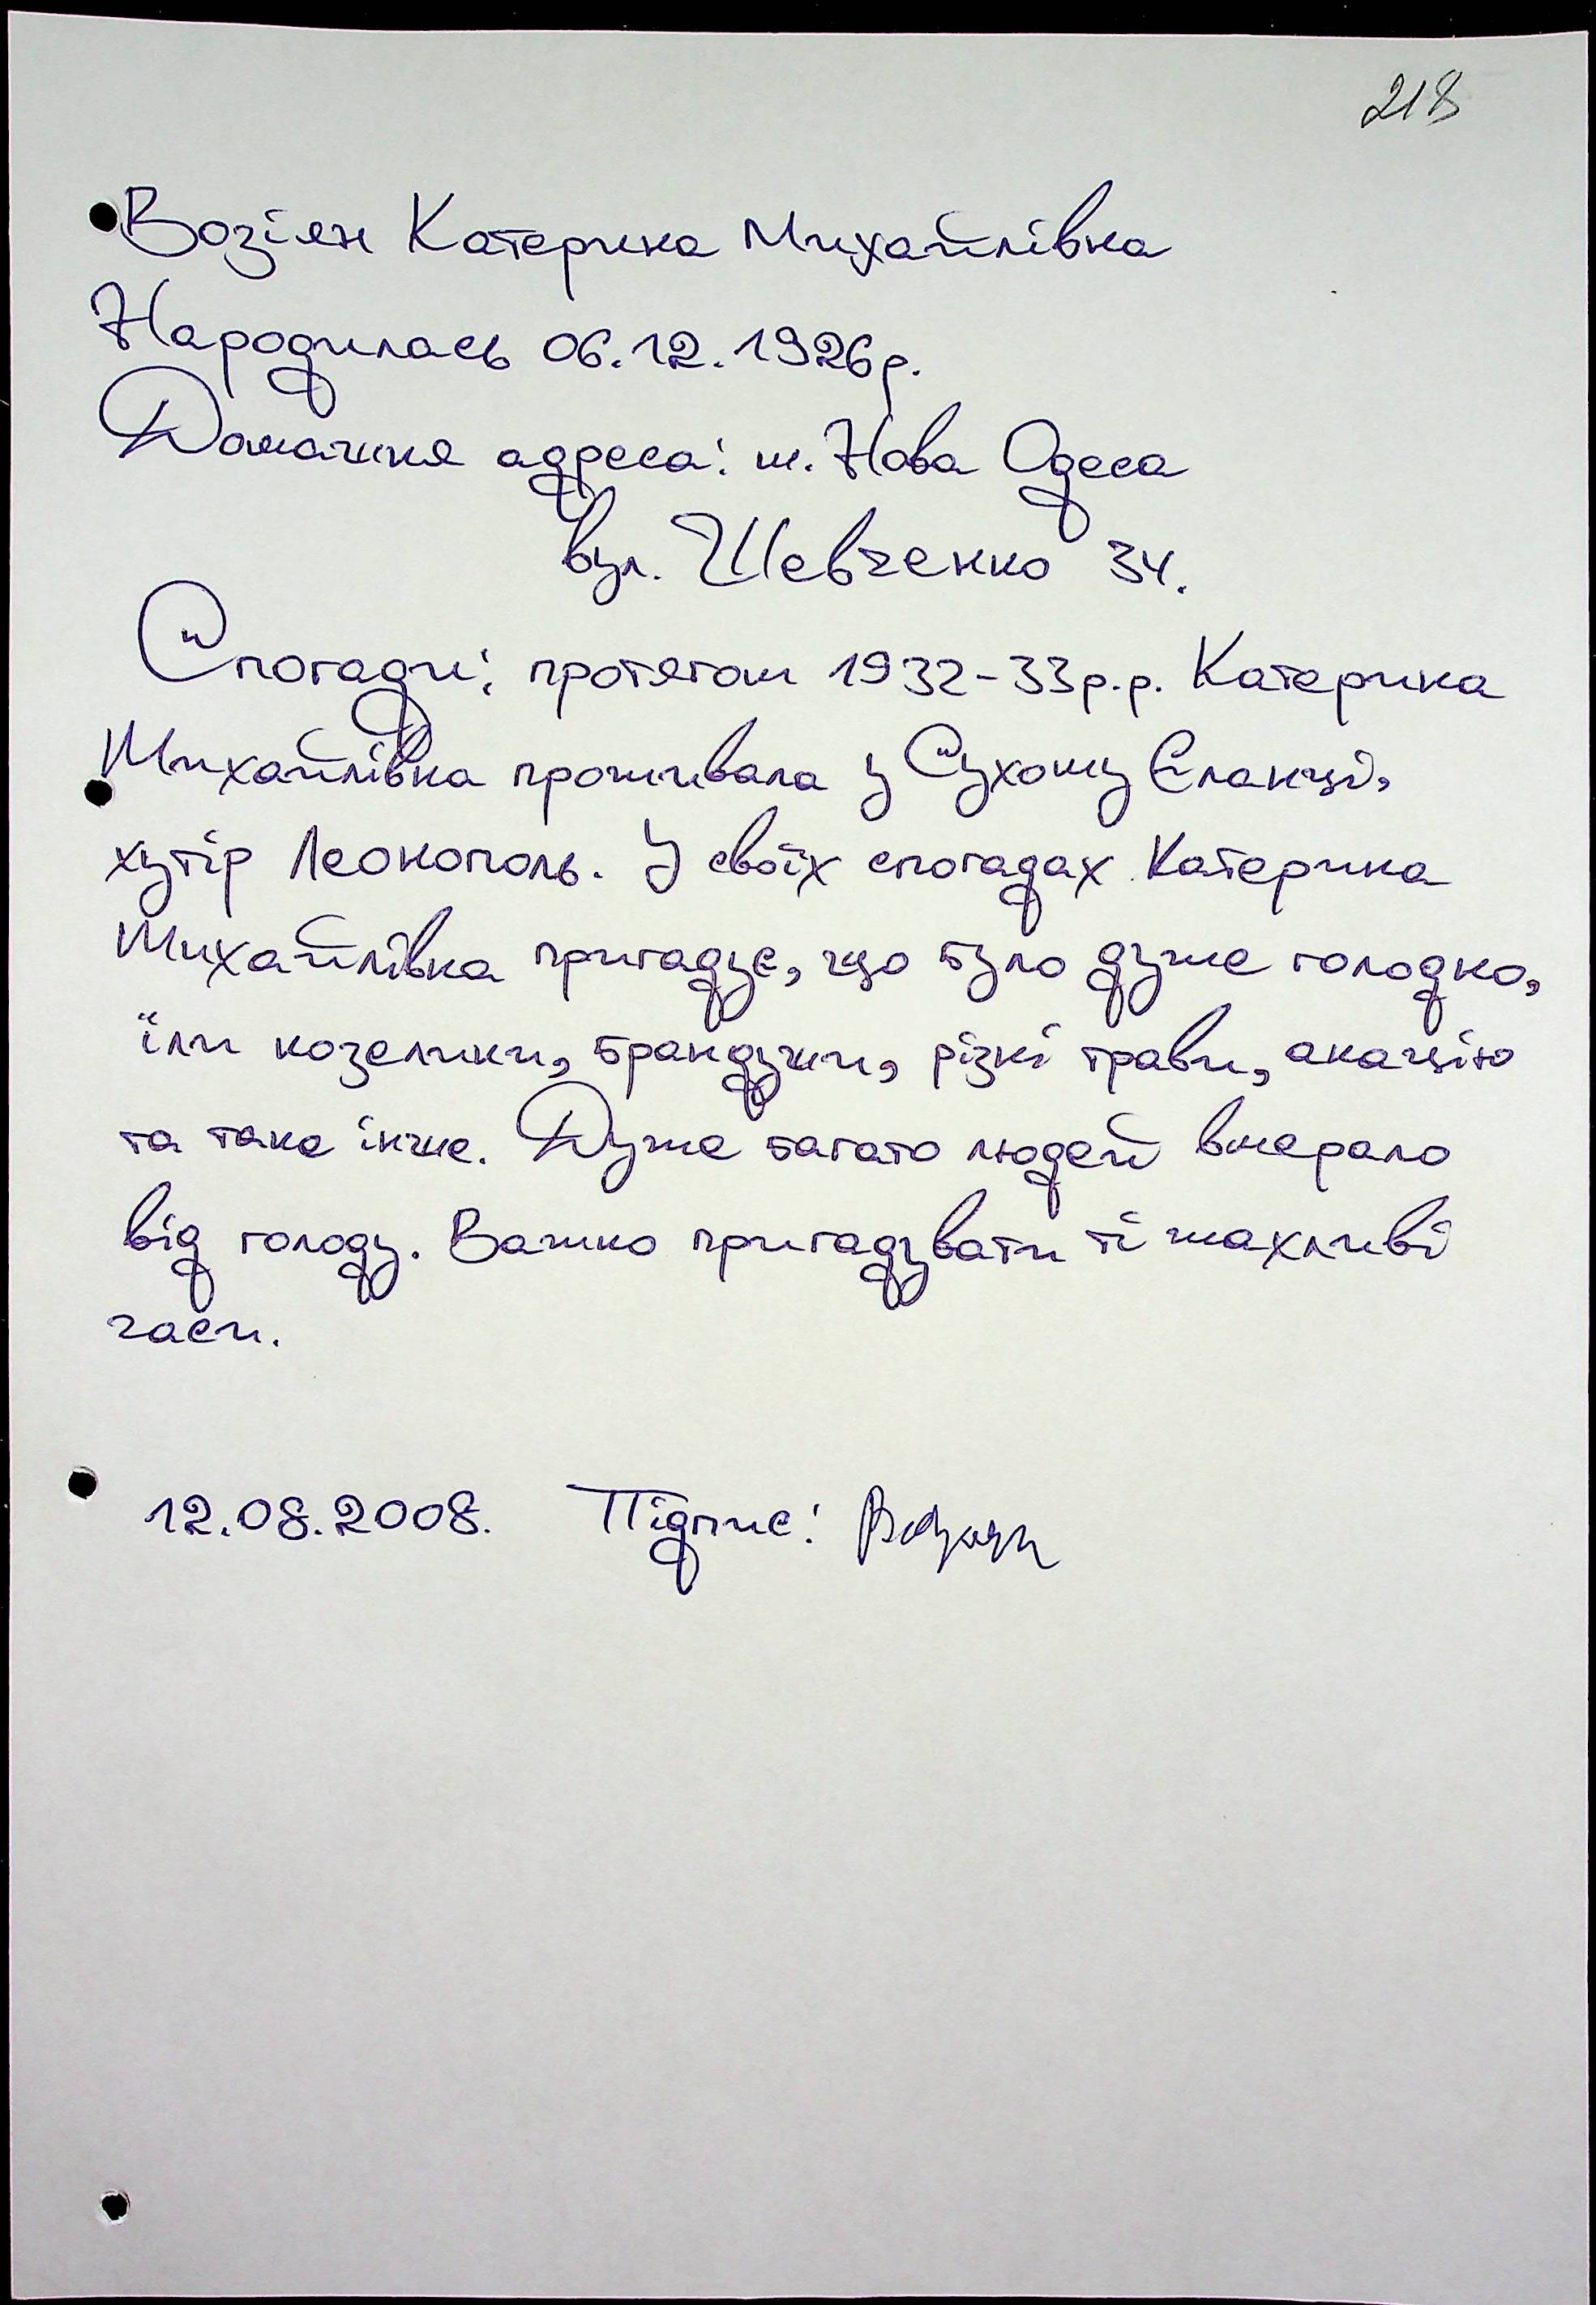 218
Возіян Катерина Михайлівна
Народилась 06.12.1926р.
Домашня адреса: м. Нова Одеса
вул. Шевченко 34.
Спогади: протягом 1932-33р.р. Катерина
Михайлівна проживала у Сухому Єланці,
хутір Леонополь. У своїх спогадах Катерина
Михайлівна пригадує, що було дуже голодно,
їли козелики, брандужи, різні трави, акацію
та таке інше. Дуже багато людей вмерало
від голоду. Важко пригадувати ті жахливі
часи.
12.08.2008. Підпис: